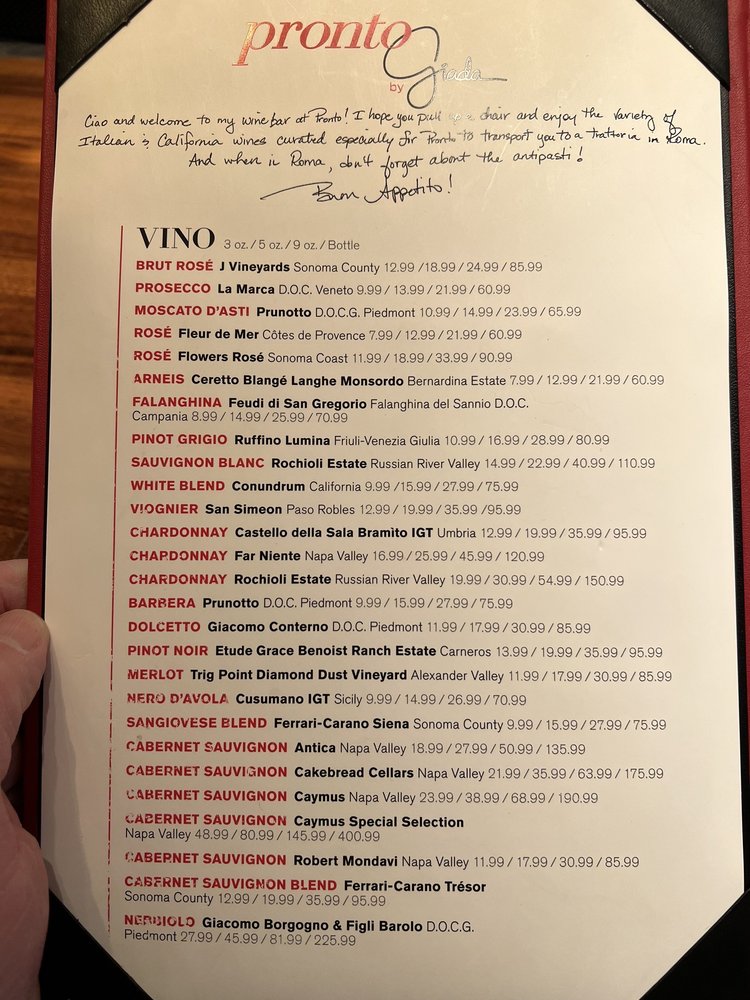 pronto
by Giada
Ciao and welcome to my wine bar at Pronto! I hope you pull up a chair and enjoy the variety of
Italian & California wines curated especially for Pronto to transport you to a trattoria in Roma.
And when in Roma, don't forget about the antipasti!
Buon Appetito!
VINO 3 oz. / 5 oz. / 9 oz. / Bottle
BRUT ROSÉ J Vineyards Sonoma County 12.99 /18.99 / 24.99 / 85.99
PROSECCO La Marca D.O.C. Veneto 9.99 / 13.99 / 21.99 / 60.99
MOSCATO D'ASTI Prunotto D.O.C.G. Piedmont 10.99 / 14.99 / 23.99 / 65.99
ROSÉ Fleur de Mer Côtes de Provence 7.99 / 12.99 / 21.99 / 60.99
ROSÉ Flowers Rosé Sonoma Coast 11.99 / 18.99 / 33.99 / 90.99
ARNEIS Ceretto Blangé Langhe Monsordo Bernardina Estate 7.99 / 12.99 / 21.99 / 60.99
FALANGHINA Feudi di San Gregorio Falanghina del Sannio D.O.C.
Campania 8.99 / 14.99 / 25.99 / 70.99
PINOT GRIGIO Ruffino Lumina Friuli-Venezia Giulia 10.99 / 16.99 / 28.99 / 80.99
SAUVIGNON BLANC Rochioli Estate Russian River Valley 14.99 / 22.99 / 40.99 / 110.99
WHITE BLEND Conundrum California 9.99 /15.99 / 27.99 / 75.99
VIOGNIER San Simeon Paso Robles 12.99 / 19.99 / 35.99 /95.99
CHARDONNAY Castello della Sala Bramìto IGT Umbria 12.99 / 19.99 / 35.99 / 95.99
CHARDONNAY Far Niente Napa Valley 16.99 / 25.99 / 45.99 / 120.99
CHARDONNAY Rochioli Estate Russian River Valley 19.99 / 30.99 / 54.99 / 150.99
BARBERA Prunotto D.O.C. Piedmont 9.99 / 15.99 / 27.99 / 75.99
DOLCETTO Giacomo Conterno D.O.C. Piedmont 11.99 / 17.99 / 30.99 / 85.99
PINOT NOIR Etude Grace Benoist Ranch Estate Carneros 13.99 / 19.99 / 35.99 / 95.99
MERLOT Trig Point Diamond Dust Vineyard Alexander Valley 11.99 / 17.99 / 30.99 / 85.99
NERO D'AVOLA Cusumano IGT Sicily 9.99 / 14.99 / 26.99 / 70.99
SANGIOVESE BLEND Ferrari-Carano Siena Sonoma County 9.99 / 15.99 / 27.99 / 75.99
CABERNET SAUVIGNON Antica Napa Valley 18.99 / 27.99 / 50.99 / 135.99
CABERNET SAUVIGNON Cakebread Cellars Napa Valley 21.99 / 35.99 / 63.99 / 175.99
CABERNET SAUVIGNON Caymus Napa Valley 23.99 / 38.99 / 68.99 / 190.99
CABERNET SAUVIGNON Caymus Special Selection
Napa Valley 48.99 / 80.99 / 145.99 / 400.99
CABERNET SAUVIGNON Robert Mondavi Napa Valley 11.99 / 17.99 / 30.99 / 85.99
CABERNET SAUVIGNON BLEND Ferrari-Carano Trésor
Sonoma County 12.99 / 19.99 / 35.99 / 95.99
NEBBIOLO Giacomo Borgogno & Figli Barolo D.O.C.G.
Piedmont 27.99 / 45.99 / 81.99 / 225.99